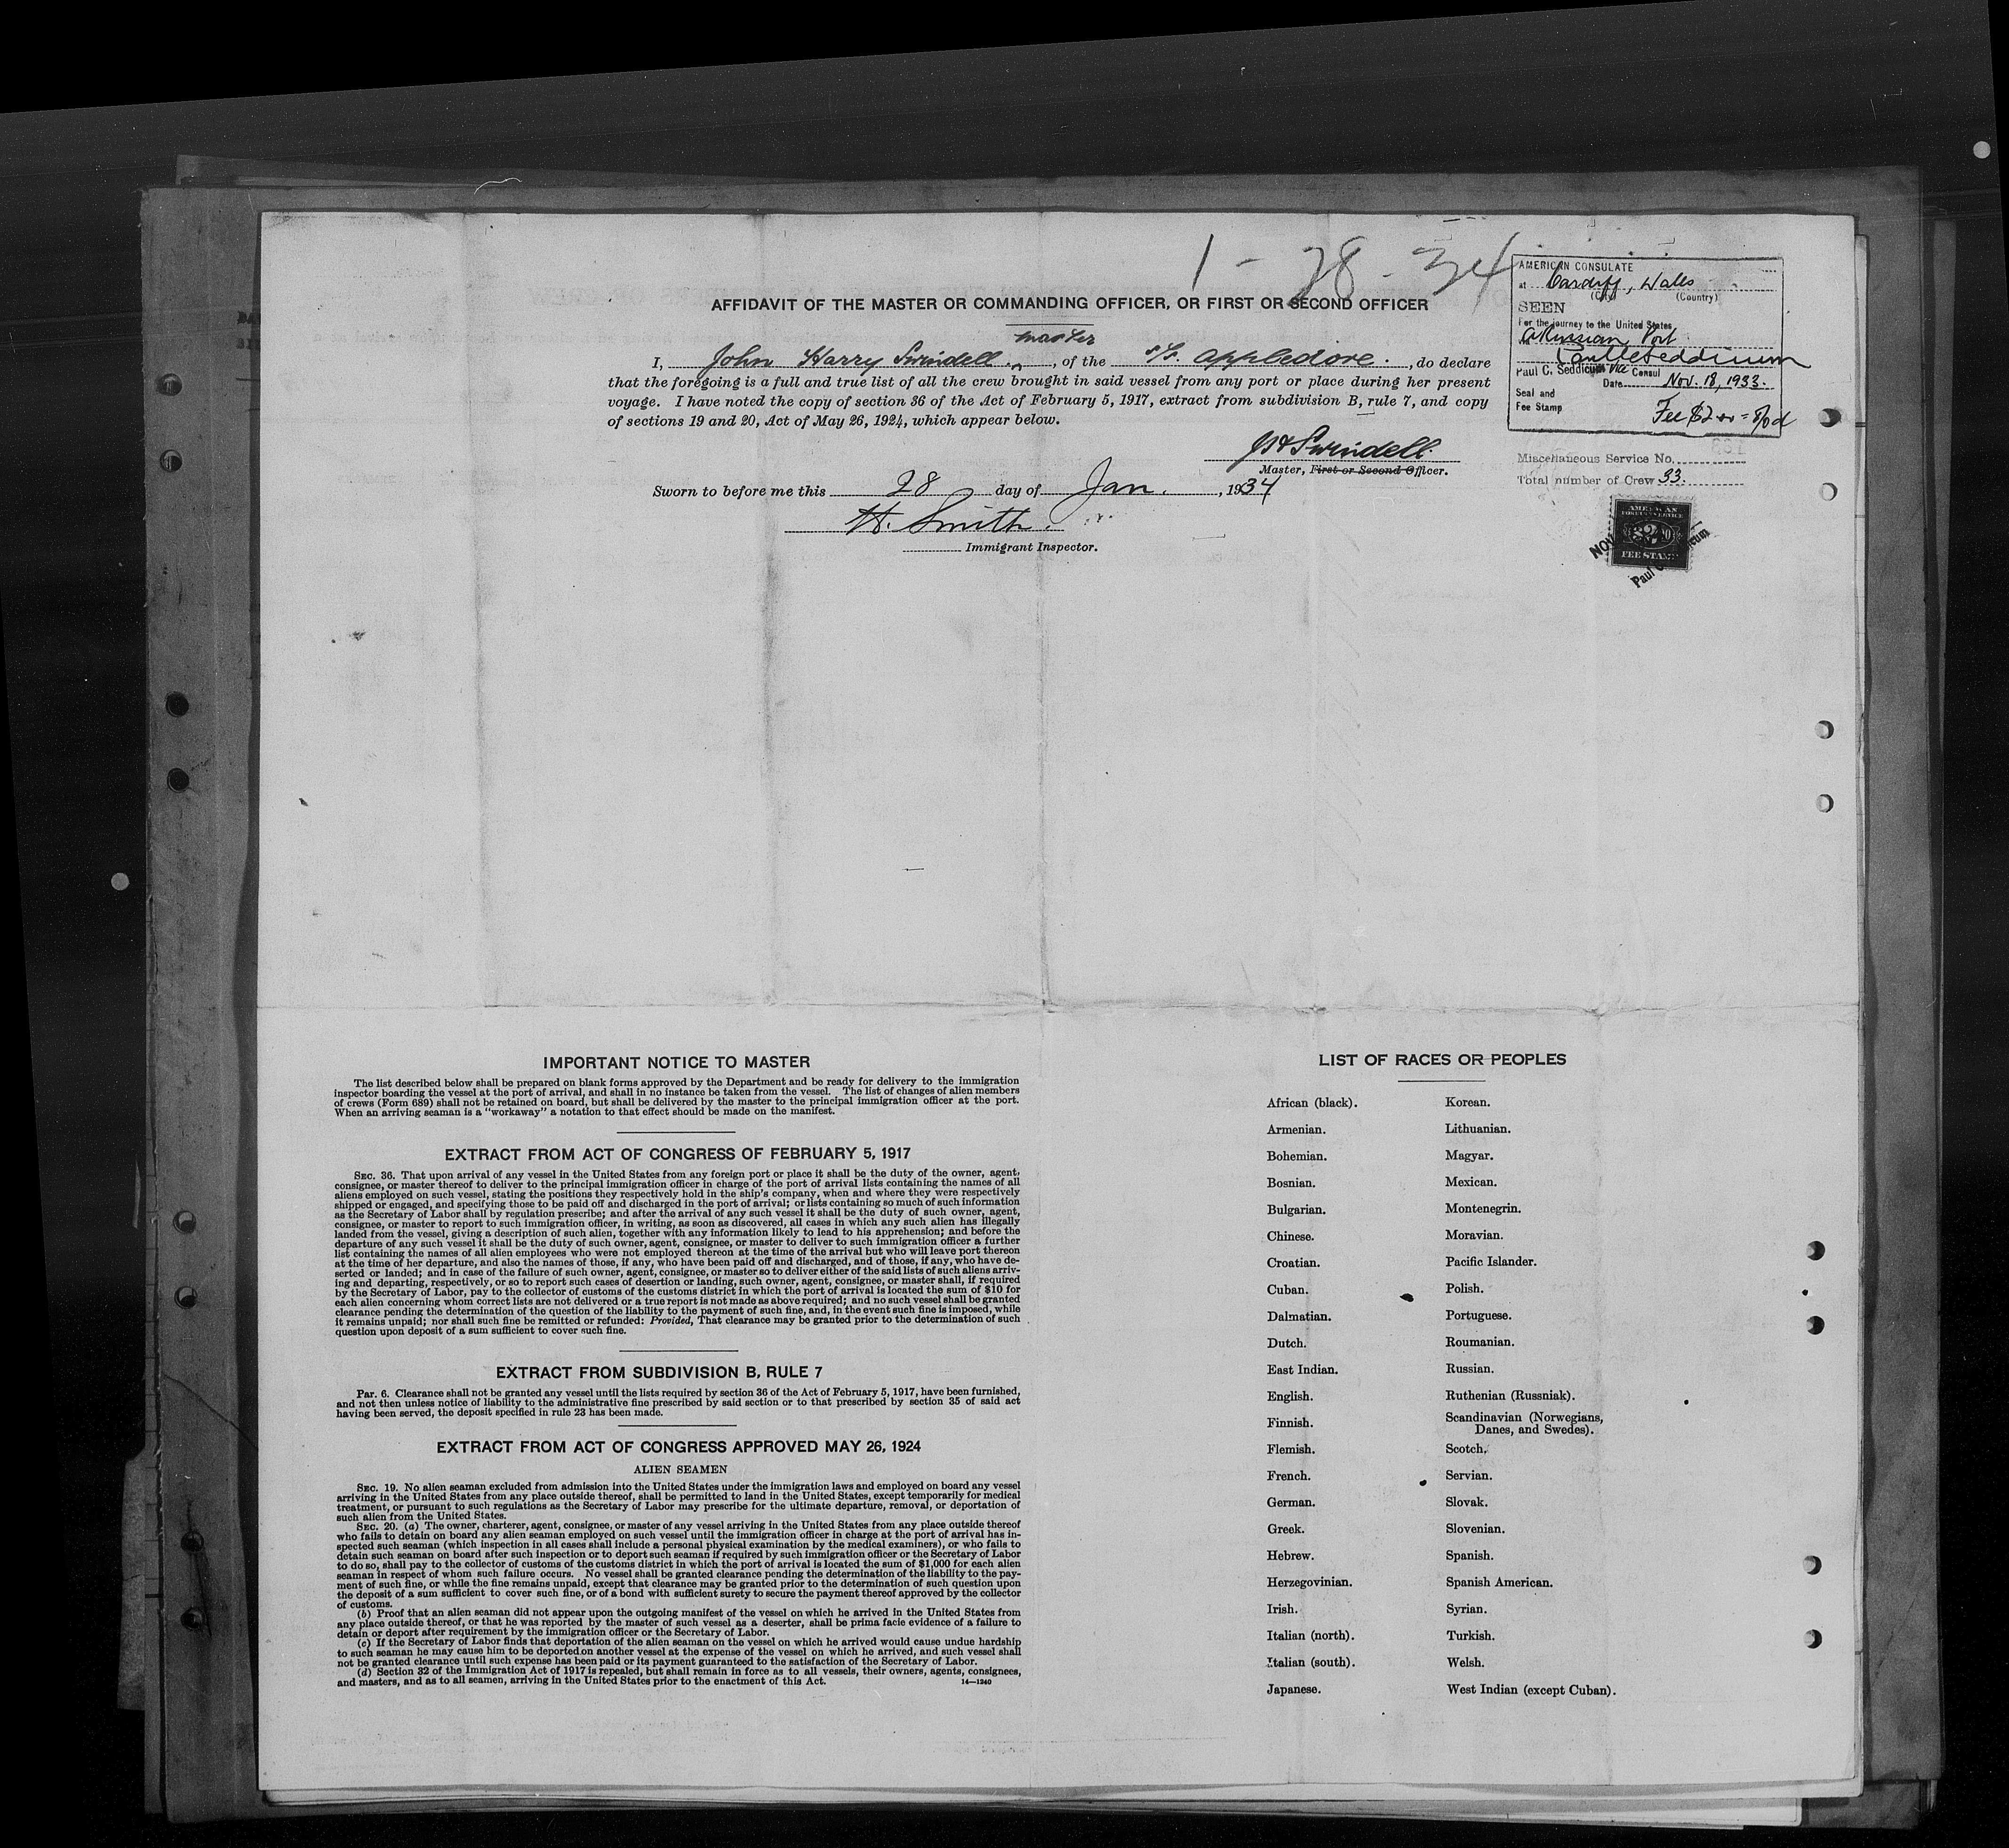 1-28-34
AFFIDAVIT OF THE MASTER OR COMMANDING OFFICER, OR FIRST OR SECOND OFFICER
master
I, John Harry Swindell, of the s/s. Appledore., do declare
that the foregoing is a full and true list of all the crew brought in said vessel from any port or place during her present
voyage. I have noted the copy of section 36 of the Act of February 5, 1917, extract from subdivision B, rule 7, and copy
of sections 19 and 20, Act of May 26, 1924, which appear below.
JH Swindell.
Master, First or Second Officer.
Sworn to before me this 28 day of Jan., 1934
H. Smith.
Immigrant Inspector.
AMERICAN CONSULATE
at Cardiff, Wales
(City) (Country)
SEEN
For the journey to the United States
a Russian Port
Paul C. Seddicum
Paul C. Seddicum Vice Consul
Date Nov. 18, 1933.
Seal and
Fee Stamp
Fee $2 00 =
Miscellaneous Service No.
Total number of Crew 33.
AMERICAN
FOREIGN SERVICE
$2.00
FEE STAMP
NOV
Paul C.
IMPORTANT NOTICE TO MASTER
The list described below shall be prepared on blank forms approved by the Department and be ready for delivery to the immigration
inspector boarding the vessel at the port of arrival, and shall in no instance be taken from the vessel. The list of changes of alien members
of crews (Form 689) shall not be retained on board, but shall be delivered by the master to the principal immigration officer at the port.
When an arriving seaman is a "workaway" a notation to that effect should be made on the manifest.
EXTRACT FROM ACT OF CONGRESS OF FEBRUARY 5, 1917
SEC. 36. That upon arrival of any vessel in the United States from any foreign port or place it shall be the duty of the owner, agent,
consignee, or master thereof to deliver to the principal immigration officer in charge of the port of arrival lists containing the names of all
aliens employed on such vessel, stating the positions they respectively hold in the ship's company, when and where they were respectively
shipped or engaged, and specifying those to be paid off and discharged in the port of arrival; or lists containing so much of such information
as the Secretary of Labor shall by regulation prescribe; and after the arrival of any such vessel it shall be the duty of such owner, agent,
consignee, or master to report to such immigration officer, in writing, as soon as discovered, all cases in which any such alien has illegally
landed from the vessel, giving a description of such alien, together with any information likely to lead to his apprehension; and before the
departure of any such vessel it shall be the duty of such owner, agent, consignee, or master to deliver to such immigration officer a further
list containing the names of all alien employees who were not employed thereon at the time of the arrival but who will leave port thereon
at the time of her departure, and also the names of those, if any, who have been paid off and discharged, and of those, if any, who have de-
serted or landed; and in case of the failure of such owner, agent, consignee, or master so to deliver either of the said lists of such aliens arriv-
ing and departing, respectively, or so to report such cases of desertion or landing, such owner, agent, consignee, or master shall, if required
by the Secretary of Labor, pay to the collector of customs of the customs district in which the port of arrival is located the sum of $10 for
each alien concerning whom correct lists are not delivered or a true report is not made as above required; and no such vessel shall be granted
clearance pending the determination of the question of the liability to the payment of such fine, and, in the event such fine is imposed, while
it remains unpaid; nor shall such fine be remitted or refunded: Provided, That clearance may be granted prior to the determination of such
question upon deposit of a sum sufficient to cover such fine.
EXTRACT FROM SUBDIVISION B, RULE 7
Par. 6. Clearance shall not be granted any vessel until the lists required by section 36 of the Act of February 5, 1917, have been furnished,
and not then unless notice of liability to the administrative fine prescribed by said section or to that prescribed by section 35 of said act
having been served, the deposit specified in rule 23 has been made.
EXTRACT FROM ACT OF CONGRESS APPROVED MAY 26, 1924
ALIEN SEAMEN
SEC. 19. No alien seaman excluded from admission into the United States under the immigration laws and employed on board any vessel
arriving in the United States from any place outside thereof, shall be permitted to land in the United States, except temporarily for medical
treatment, or pursuant to such regulations as the Secretary of Labor may prescribe for the ultimate departure, removal, or deportation of
such alien from the United States.
SEC. 20. (a) The owner, charterer, agent, consignee, or master of any vessel arriving in the United States from any place outside thereof
who fails to detain on board any alien seaman employed on such vessel until the immigration officer in charge at the port of arrival has in-
spected such seaman (which inspection in all cases shall include a personal physical examination by the medical examiners), or who fails to
detain such seaman on board after such inspection or to deport such seaman if required by such immigration officer or the Secretary of Labor
to do so, shall pay to the collector of customs of the customs district in which the port of arrival is located the sum of $1,000 for each alien
seaman in respect of whom such failure occurs. No vessel shall be granted clearance pending the determination of the liability to the pay-
ment of such fine, or while the fine remains unpaid, except that clearance may be granted prior to the determination of such question upon
the deposit of a sum sufficient to cover such fine, or of a bond with sufficient surety to secure the payment thereof approved by the collector
of customs.
(b) Proof that an alien seaman did not appear upon the outgoing manifest of the vessel on which he arrived in the United States from
any place outside thereof, or that he was reported by the master of such vessel as a deserter, shall be prima facie evidence of a failure to
detain or deport after requirement by the immigration officer or the Secretary of Labor.
(c) If the Secretary of Labor finds that deportation of the alien seaman on the vessel on which he arrived would cause undue hardship
to such seaman he may cause him to be deported on another vessel at the expense of the vessel on which he arrived, and such vessel shall
not be granted clearance until such expense has been paid or its payment guaranteed to the satisfaction of the Secretary of Labor.
(d) Section 32 of the Immigration Act of 1917 is repealed, but shall remain in force as to all vessels, their owners, agents, consignees,
and masters, and as to all seamen, arriving in the United States prior to the enactment of this Act.
14—1240
LIST OF RACES OR PEOPLES
African (black). Korean.
Armenian. Lithuanian.
Bohemian. Magyar.
Bosnian. Mexican.
Bulgarian. Montenegrin.
Chinese. Moravian.
Croatian. Pacific Islander.
Cuban. Polish.
Dalmatian. Portuguese.
Dutch. Roumanian.
East Indian. Russian.
English. Ruthenian (Russniak).
Finnish. Scandinavian (Norwegians,
Danes, and Swedes).
Flemish. Scotch.
French. Servian.
German. Slovak.
Greek. Slovenian.
Hebrew. Spanish.
Herzegovinian. Spanish American.
Irish. Syrian.
Italian (north). Turkish.
Italian (south). Welsh.
Japanese. West Indian (except Cuban).